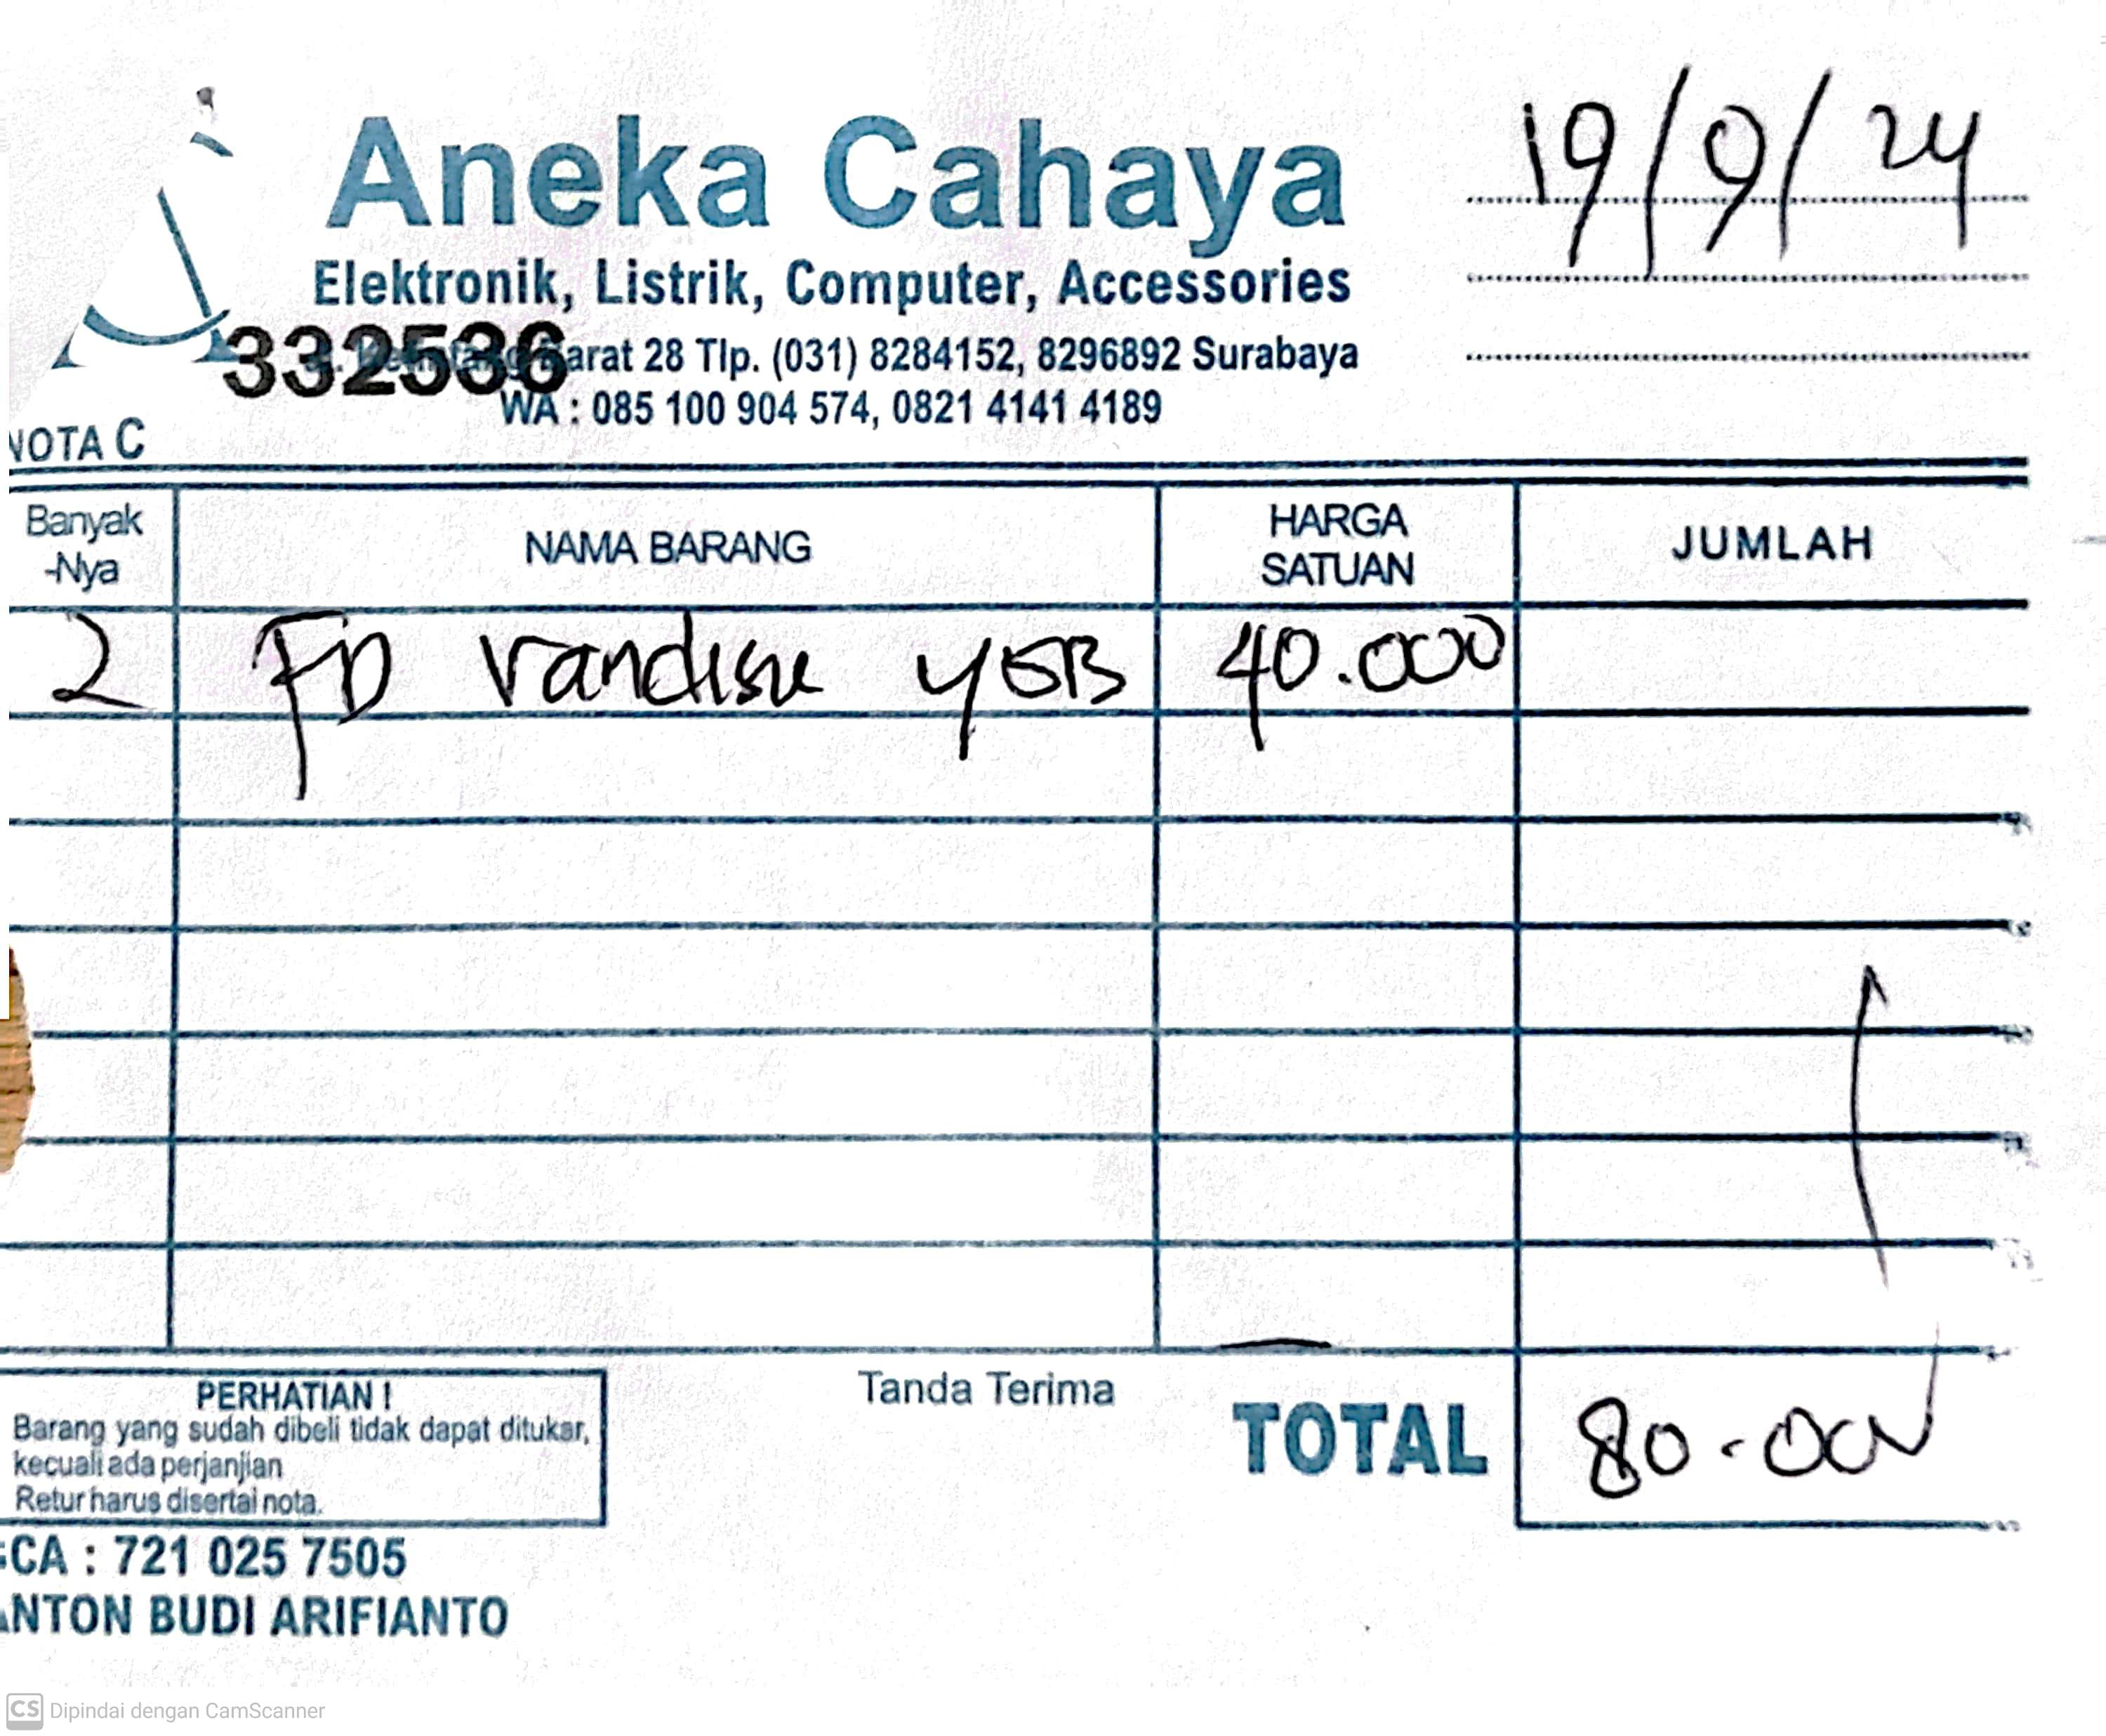 Aneka Cahaya
19/9/24
Elektronik, Listrik, Computer, Accessories
332536 arat 28 Tlp. (031) 8284152, 8296892 Surabaya
WA : 085 100 904 574, 0821 4141 4189
NOTA C
Banyak
-Nya
NAMA BARANG
HARGA
SATUAN
JUMLAH
2 FD Vandisk 4GB 40.000
PERHATIAN !
Barang yang sudah dibeli tidak dapat ditukar,
kecuali ada perjanjian
Retur harus disertai nota.
Tanda Terima
TOTAL 80.000
CA : 721 025 7505
ANTON BUDI ARIFIANTO
CS Dipindai dengan CamScanner